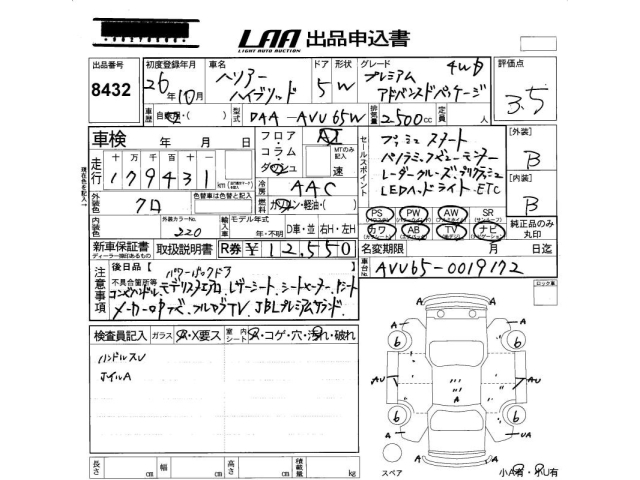 LAA 出品申込書
LIGHT AUTO AUCTION
出品番号
8432
初度登録年月
26年10月
車名
ハリアー
ハイブリッド
ドア 形状
5 W
グレード
プレミアム 4WD
アドバンスドパッケージ
評価点
3.5
車歴
自家用・( )
型式
DAA-AVU65W
排気量
2500cc
定員
人
車検 年 月 日
走行
十 万 千 百 十 一
179431
km
フロア・
コラム・
ダッシュ
AT
MTのみ記入
速
冷房
AAC
燃料
ガソリン・軽油・( )
外装色
クロ
色替車は色替と記入
内装色
外装カラーNo.
220
輸入車
モデル年式
年・不明
D車・並 右H・左H
セールスポイント
プッシュスタート
パノラミックビューモニター
レーダークルーズ プリクラッシュ
LEDヘッドライト ETC
PS PW AW SR
カワ AB TV ナビ
[外装]
B
[内装]
B
純正品のみ
丸印
新車保証書
ディーラー捺印あるもの
取扱説明書
R券 ¥12,550
名変期限 月 日迄
車台No.
AVU65-0019172
注意事項
後日品【
パワーバックドア
不具合箇所等
コンビハンドル モデリスタエアロ レザーシート シートヒーター
メーカーナビ フルセグTV JBLプレミアムサウンド
ロック車
検査員記入
ガラス A・X要ス
室内シート A・コゲ・穴・汚れ・破れ
ハンドルスレ
ホイルA
A A
6 6
AU AU
A
6 6
A UA
A A
スペア
小A有・小U有
長さ cm 幅 cm 高さ cm 積載量 kg